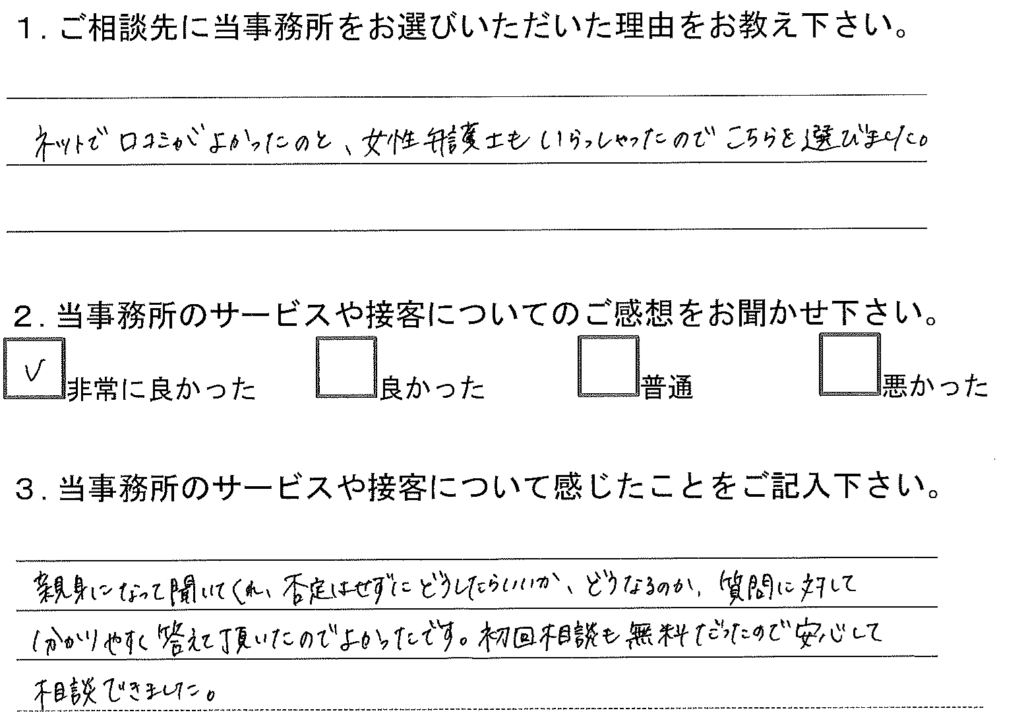 1. ご相談先に当事務所をお選びいただいた理由をお教え下さい。
ネットで口コミがよかったのと、女性弁護士もいらっしゃったのでこちらを選びました。
2. 当事務所のサービスや接客についてのご感想をお聞かせ下さい。
✓ 非常に良かった 良かった 普通 悪かった
3. 当事務所のサービスや接客について感じたことをご記入下さい。
親身になって聞いてくれ、否定はせずにどうしたらいいか、どうなるのか、質問に対して
分かりやすく答えて頂いたのでよかったです。初回相談も無料だったので安心して
相談できました。